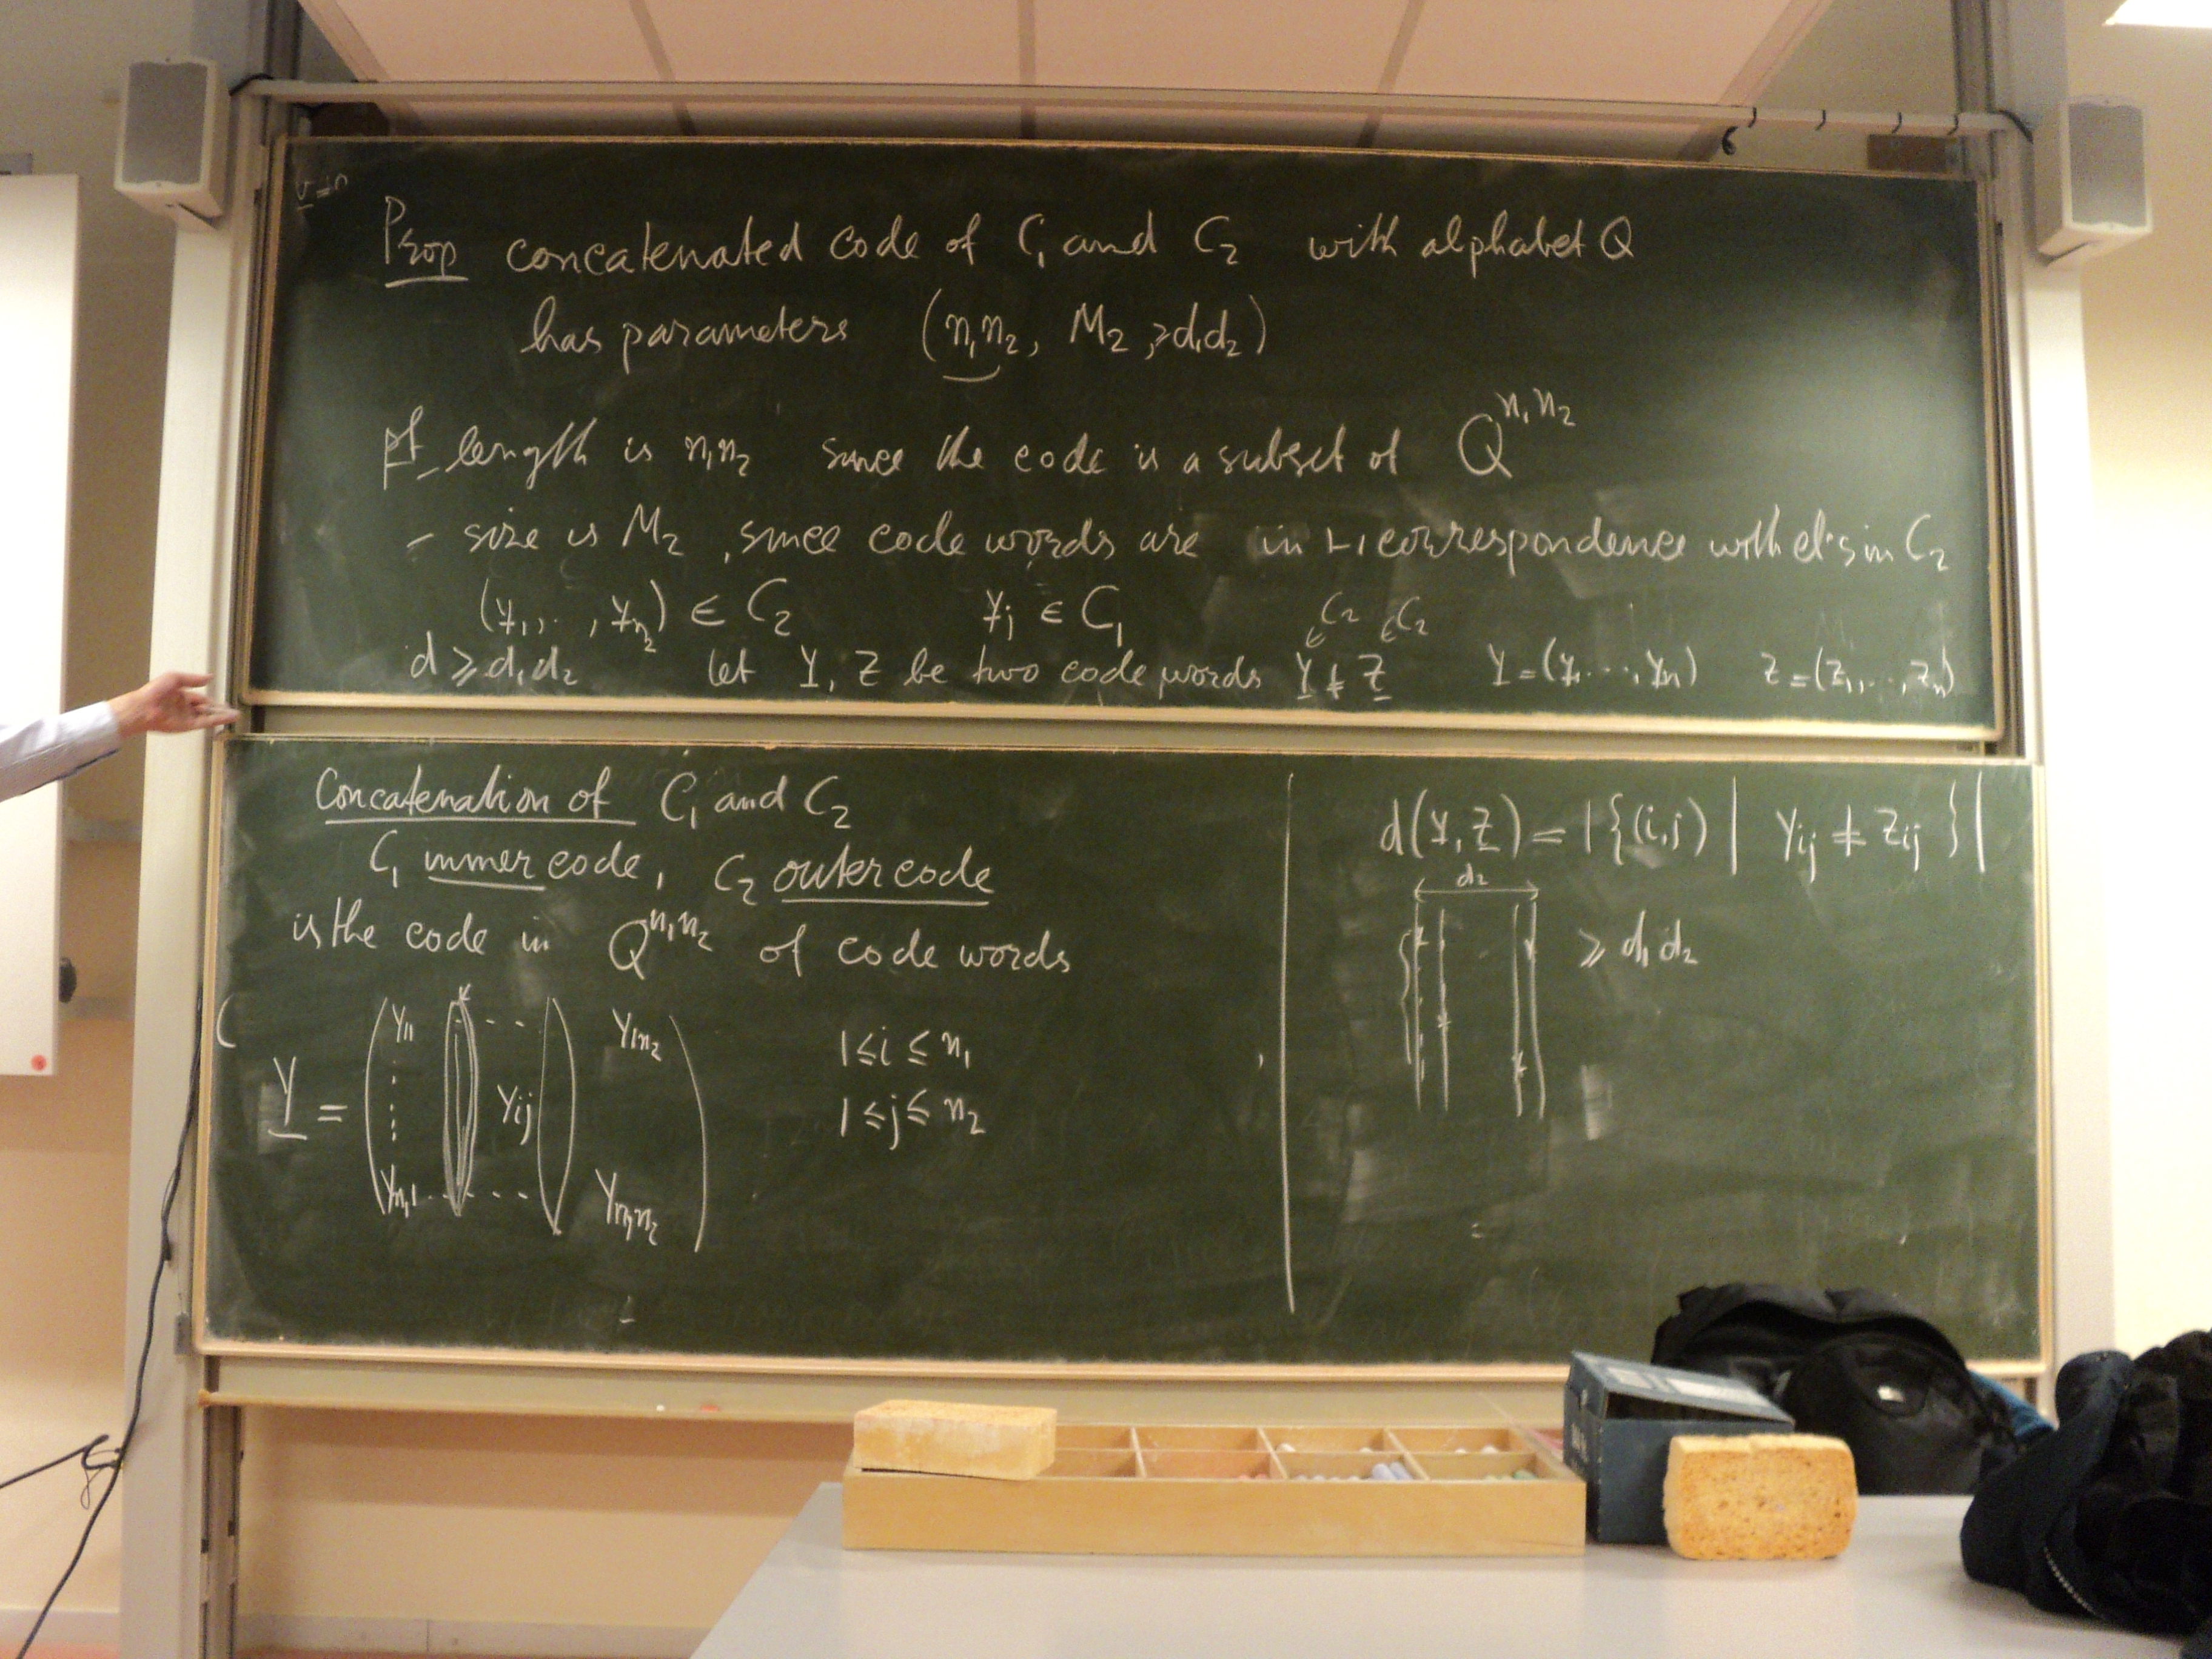 v = n
Prop concatenated code of C₁ and C₂ with alphabet Q
has parameters (n₁n₂, M₂, ≥d₁d₂)
pf length is n₁n₂ since the code is a subset of Q^{n₁n₂}
- size is M₂, since code words are in 1-1 correspondence with el.s in C₂
(y₁, .. , y_{n₂}) ∈ C₂ y_j ∈ C₁ ∈C₂ ∈C₂
d ≥ d₁d₂ let Y, Z be two code words Y ≠ Z Y = (y₁ ..., y_n) Z = (z₁, .., z_n)
Concatenation of C₁ and C₂
C₁ inner code, C₂ outer code
is the code in Q^{n₁n₂} of code words
(
Y = ( y₁₁ - - y_{1n₂} 1 ≤ i ≤ n₁
y_{ij} 1 ≤ j ≤ n₂
y_{n₁1} ... - - - y_{n₁n₂} )
d(Y, Z) = |{(i,j) | y_{ij} ≠ z_{ij} }|
d₂
≥ d₁d₂